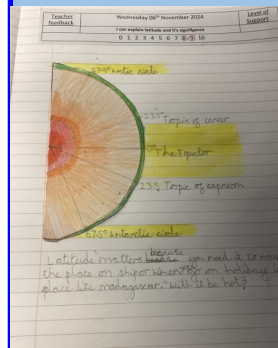 Teacher feedback
Wednesday 06th November 2024
Level of Support
I can explain latitude and it's significance
0 1 2 3 4 5 6 7 8 9 10
Arctic circle
23.5° Tropic of cancer
0° The Equator
23.5 Tropic of capricorn
Antarctic circle
because
Latitude matters you need it to
the place on ship or when go on holiday
place like madagascar." will it be hot?